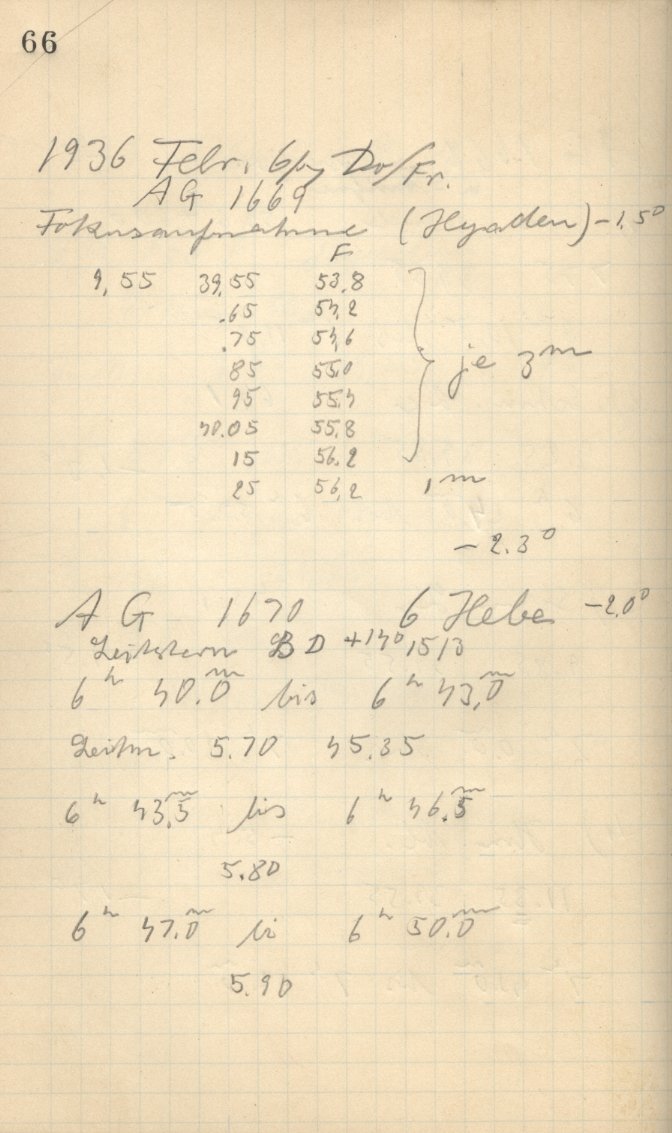 66
1936 Febr. 6/7 Do/Fr.
AG 1669
Fokusaufnahme (Hyaden) -1,5°
F
9,55 39,55 53,8
.65 54,2
.75 54,6
85 55,0
95 55,4
40.05 55,8
15 56.2
25 56,2
je 3m
1 m
-2.3°
AG 1670 6 Hebe -2,0°
Leitstern BD +14° 1513
6h 40.0m bis 6h 43,0m
Leitm. 5.70 45.35
6h 43,5m bis 6h 46.5m
5.80
6h 47.0m bi 6h 50.0m
5.90